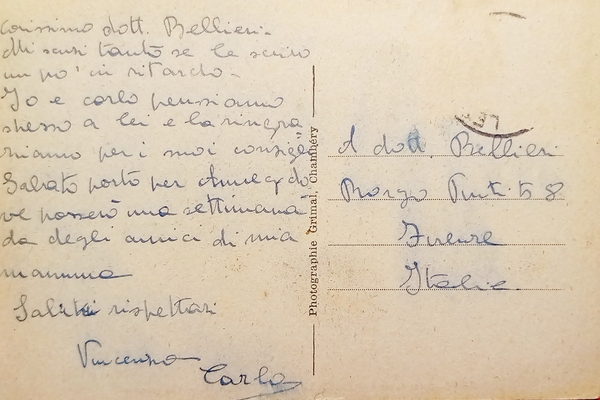 carissimo dott. Bellieri.
Mi scusi tanto se le scrivo
un po' in ritardo.
Io e Carlo pensiamo
spesso a lei e la ringra
ziamo per i suoi consigli
Sabato parto per Annecy do
ve passerò una settimana
da degli amici di mia
mamma
Saluti rispettosi
Vincenzo
Carlo
Photographie Grimal, Chambéry
A dott. Bellieri
Borgo 8
Firenze
Italia